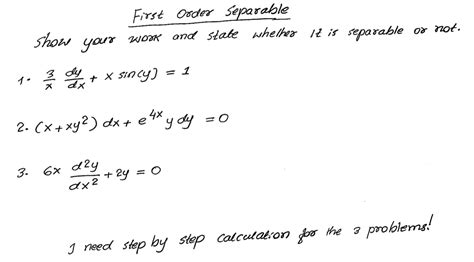 First Order Separable
Show your work and state whether it is separable or not.
1. 3/x dy/dx + x sin(y) = 1
2. (x+xy²) dx + e^4x y dy = 0
3. 6x d2y/dx² + 2y = 0
I need step by step calculation for the 3 problems!